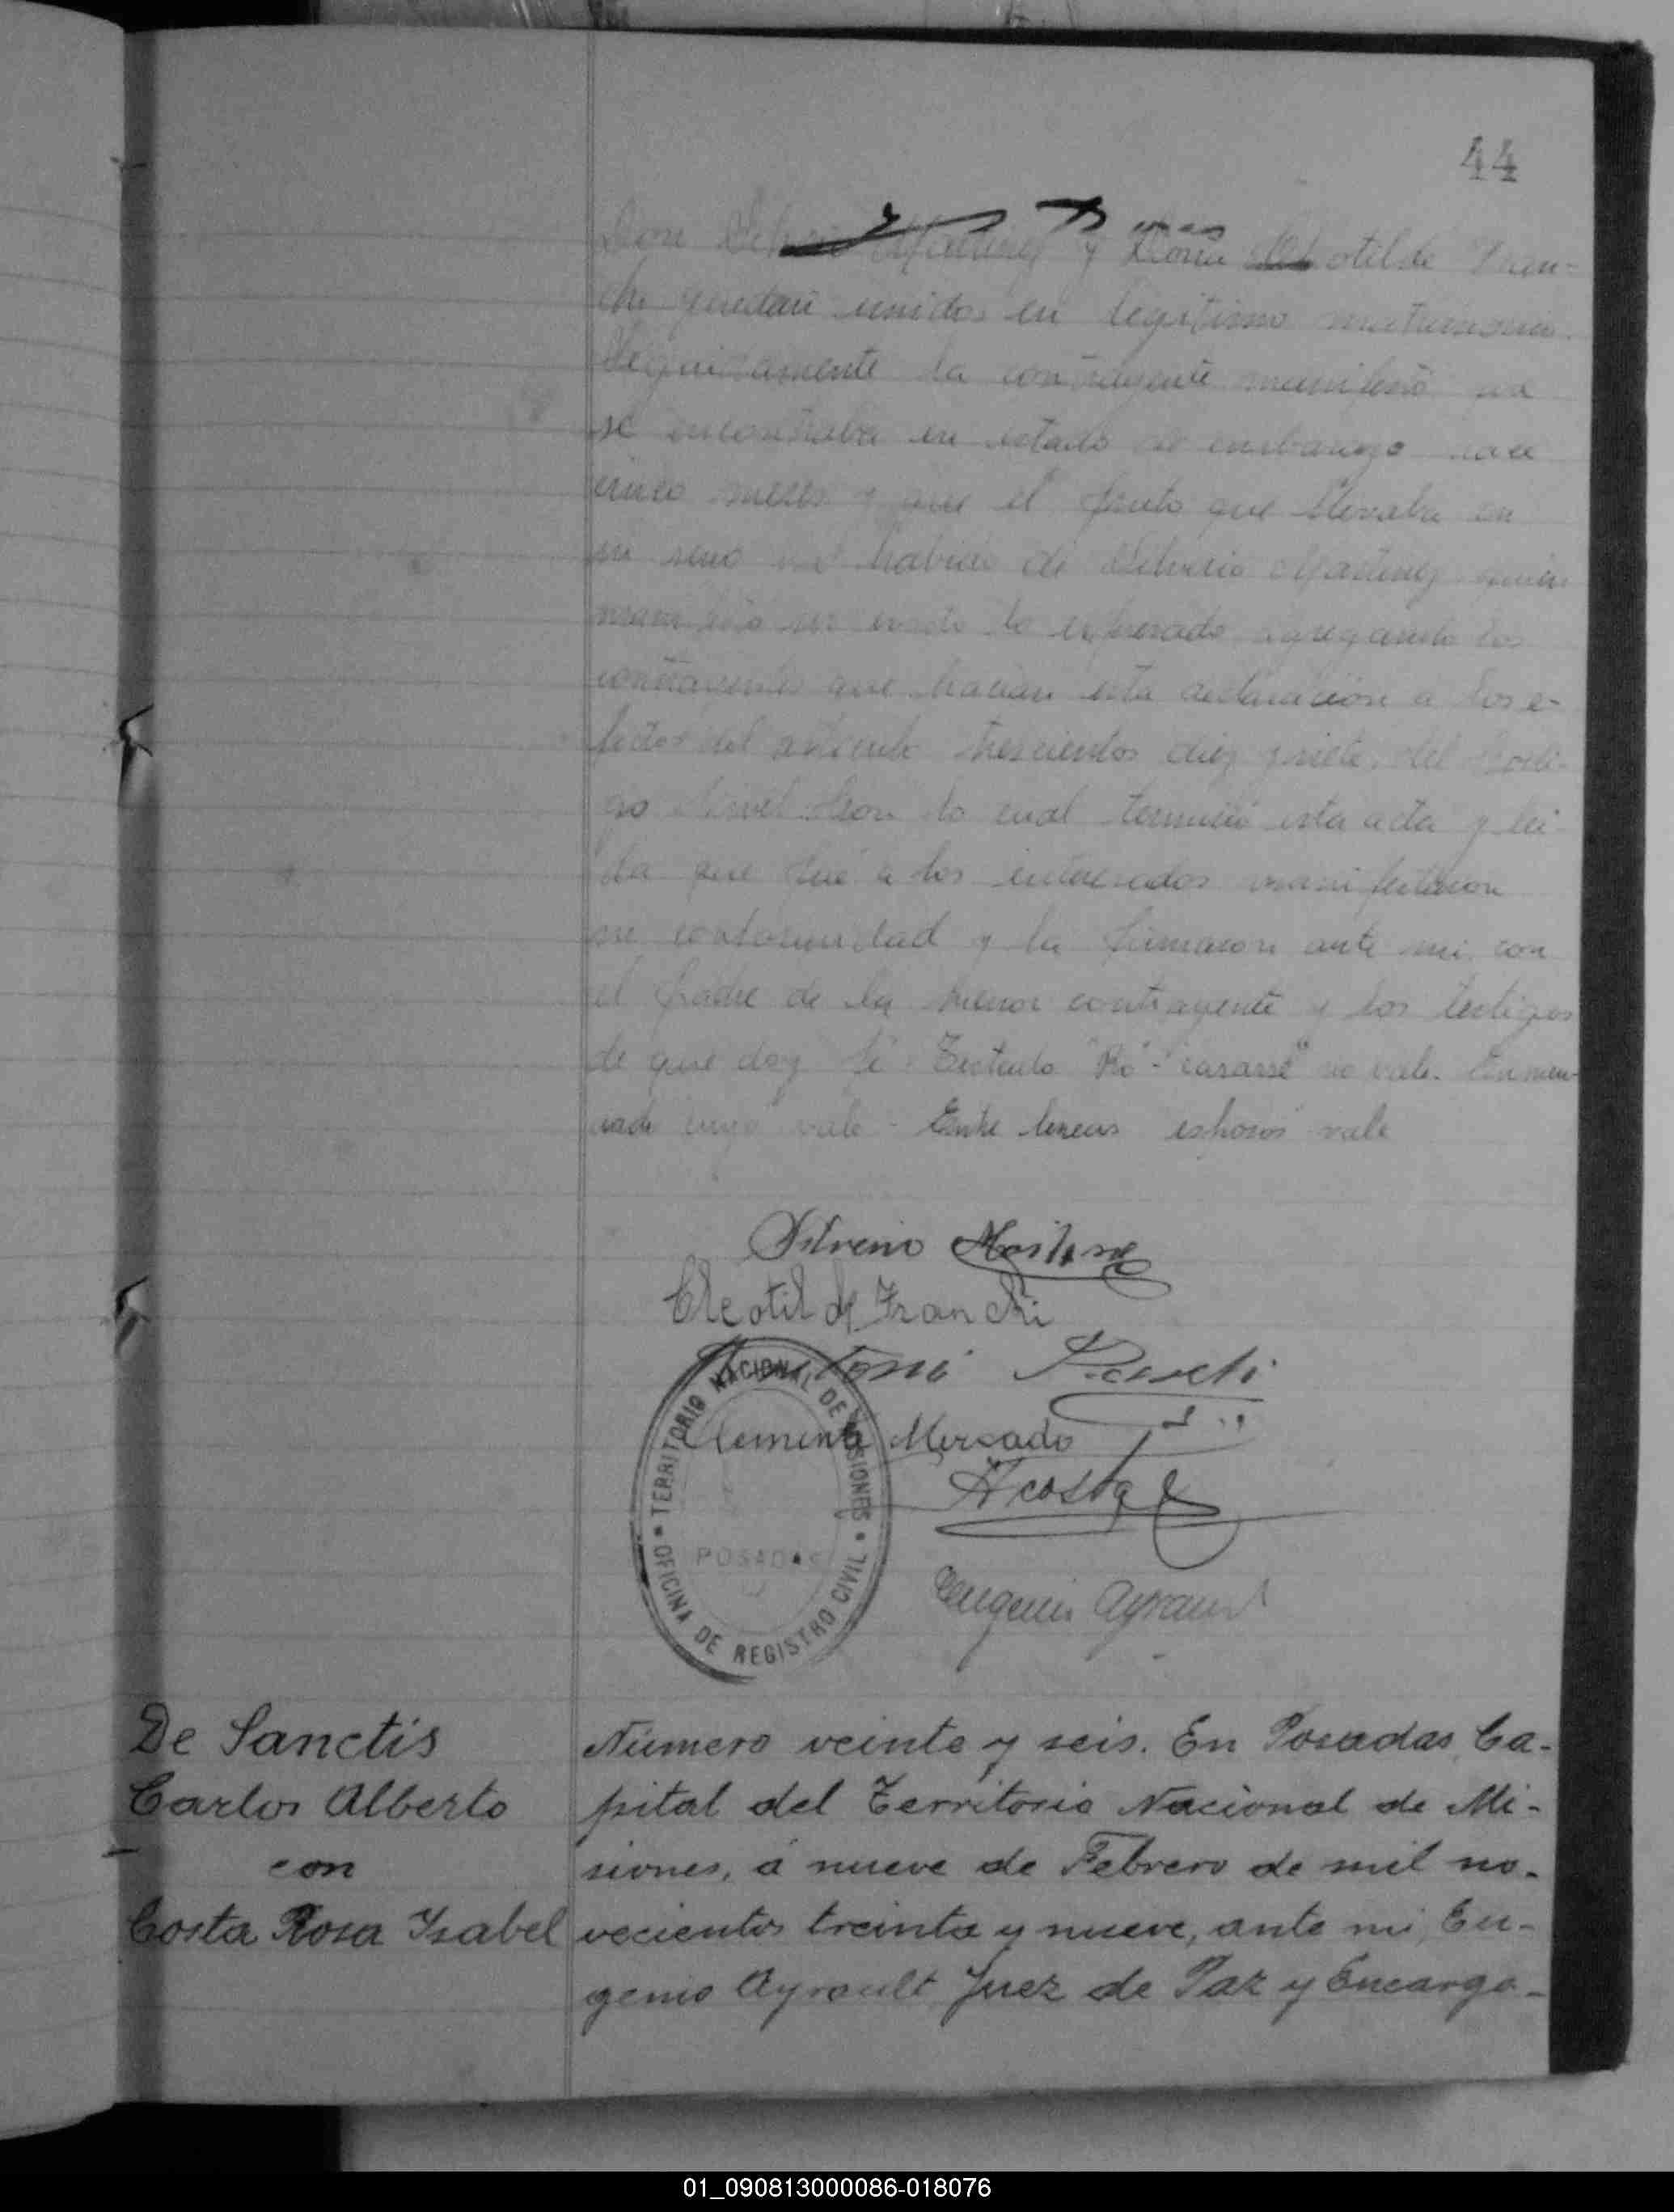 44
Don Silverio Martinez y Doña Cleotilde Fran-
chi quedan unidos en legitimo matrimonio.
Seguidamente la contrayente manifestó que
se encontraba en estado de embarazo hace
cinco meses y que el fruto que llevaba en
su seno es habido de Silverio Martinez quien
manifestó ser cierto lo expresado agregando los
contrayentes que hacian esta declaración a los e-
fectos del articulo trescientos diez y siete del Codi-
go Civil. Con lo cual terminó esta acta y lei-
da que fué a los interesados manifestaron
su conformidad y la firmaron ante mi con
el padre de la menor contrayente y los testigos
de que doy fé. Testado "Ro"-"casarse" no vale. Enmen-
dado vale. Entre lineas esposos vale
Silverio Martinez
Cleotilde Franchi
Clemente Mercado
Acosta
Eugenio Ayrault
TERRITORIO NACIONAL DE MISIONES
OFICINA DE REGISTRO CIVIL
POSADAS
De Sanctis
Carlos Alberto
con
Costa Rosa Ysabel
Número veinte y seis. En Posadas Ca-
pital del Territorio Nacional de Mi-
siones, á nueve de Febrero de mil no-
vecientos treinta y nueve, ante mi, Eu-
genio Ayrault Juez de Paz y Encarga-
01_090813000086-018076